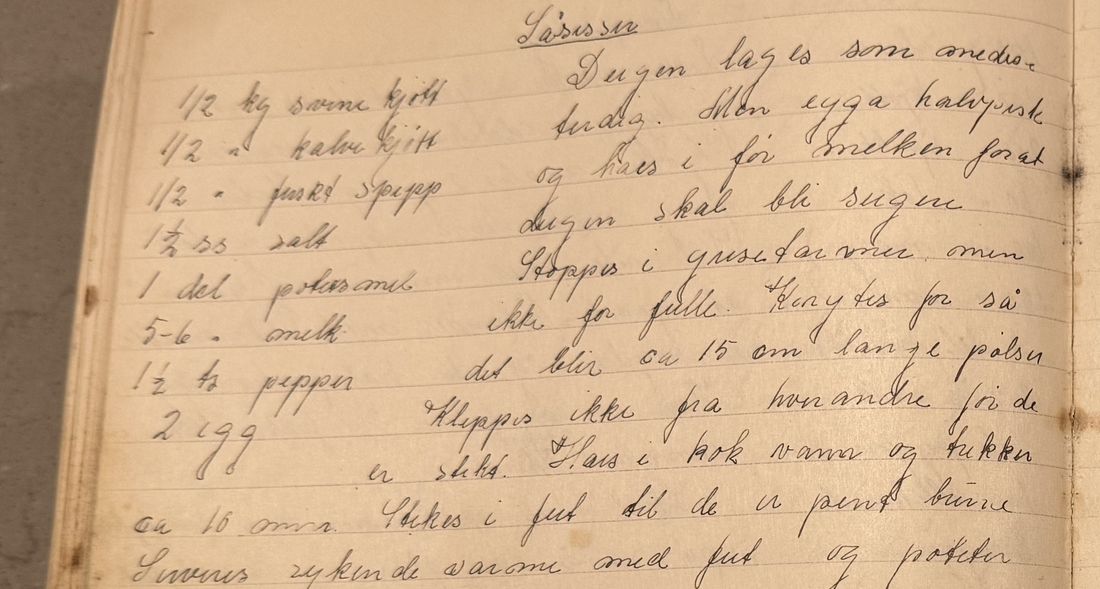 Såsisser
1/2 kg svine kjøtt
1/2 " kalve kjøtt
1/2 " ferskt spepp
1 1/2 ss salt
1 del potesmel
5-6 " melk
1 1/2 ts pepper
2 egg
Deigen lages som medis-
terdeig. Men egga halvpisk
og haes i før melken forat
deigen skal bli seigere
Stoppes i grisetarmer men
ikke for fulle. Knytes for så
det blir ca 15 cm lange pølser
Kleppes ikke fra hverandre før de
er stekt. Haes i kok vann og trekker
ca 10 min. Stekes i fett til de er pent brune
Serveres rykende varme med fett og poteter